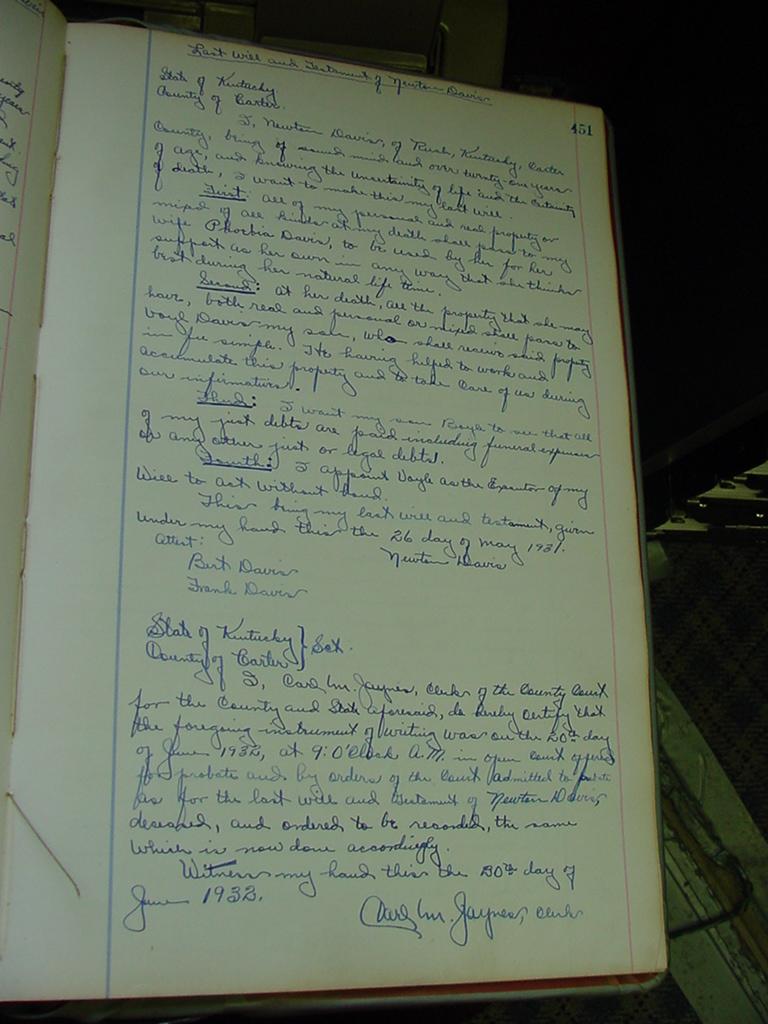 Last Will and Testament of Newton Davis
451
State of Kentucky
County of Carter.
I, Newton Davis, of Rush, Kentucky, Carter
County, being of sound mind and over twenty-one years
of age, and knowing the uncertainty of life and the certainty
of death, I want to make this my last will.
First: All of my personal and real property or
mixed of all kinds at my death shall pass to my
wife Phoebia Davis, to be used by her for her
support as her own in any way that she thinks
best during her natural life time.
Second: At her death, all the property that she may
have, both real and personal or mixed shall pass to
Davis my son, who shall receive said property
in fee simple. He having helped to work and
accumulate this property and to take care of us during
our infirmaties.
Third: I want my son to see that all
of my just debts are paid including funeral expenses
or any other just or legal debts.
Fourth: I appoint as the Executor of my
Will to act without bond.
This being my last will and testament, given
under my hand this the 26 day of May 1931.
Attest: Newton Davis
Bert Davis
Frank Davis
State of Kentucky } Sct.
County of Carter
I, Carl M. Jaynes, Clerk of the County Court
for the County and State aforesaid, do hereby certify that
the foregoing instrument of writing was on the 20th day
of June 1932, at 9:O'Clock A.M. in open court offered
for probate and by orders of the Court admitted to probate
as for the last will and testament of Newton Davis,
deceased, and ordered to be recorded, the same
which is now done accordingly.
Witness my hand this the 20th day of
June 1932.
Carl M. Jaynes, Clerk